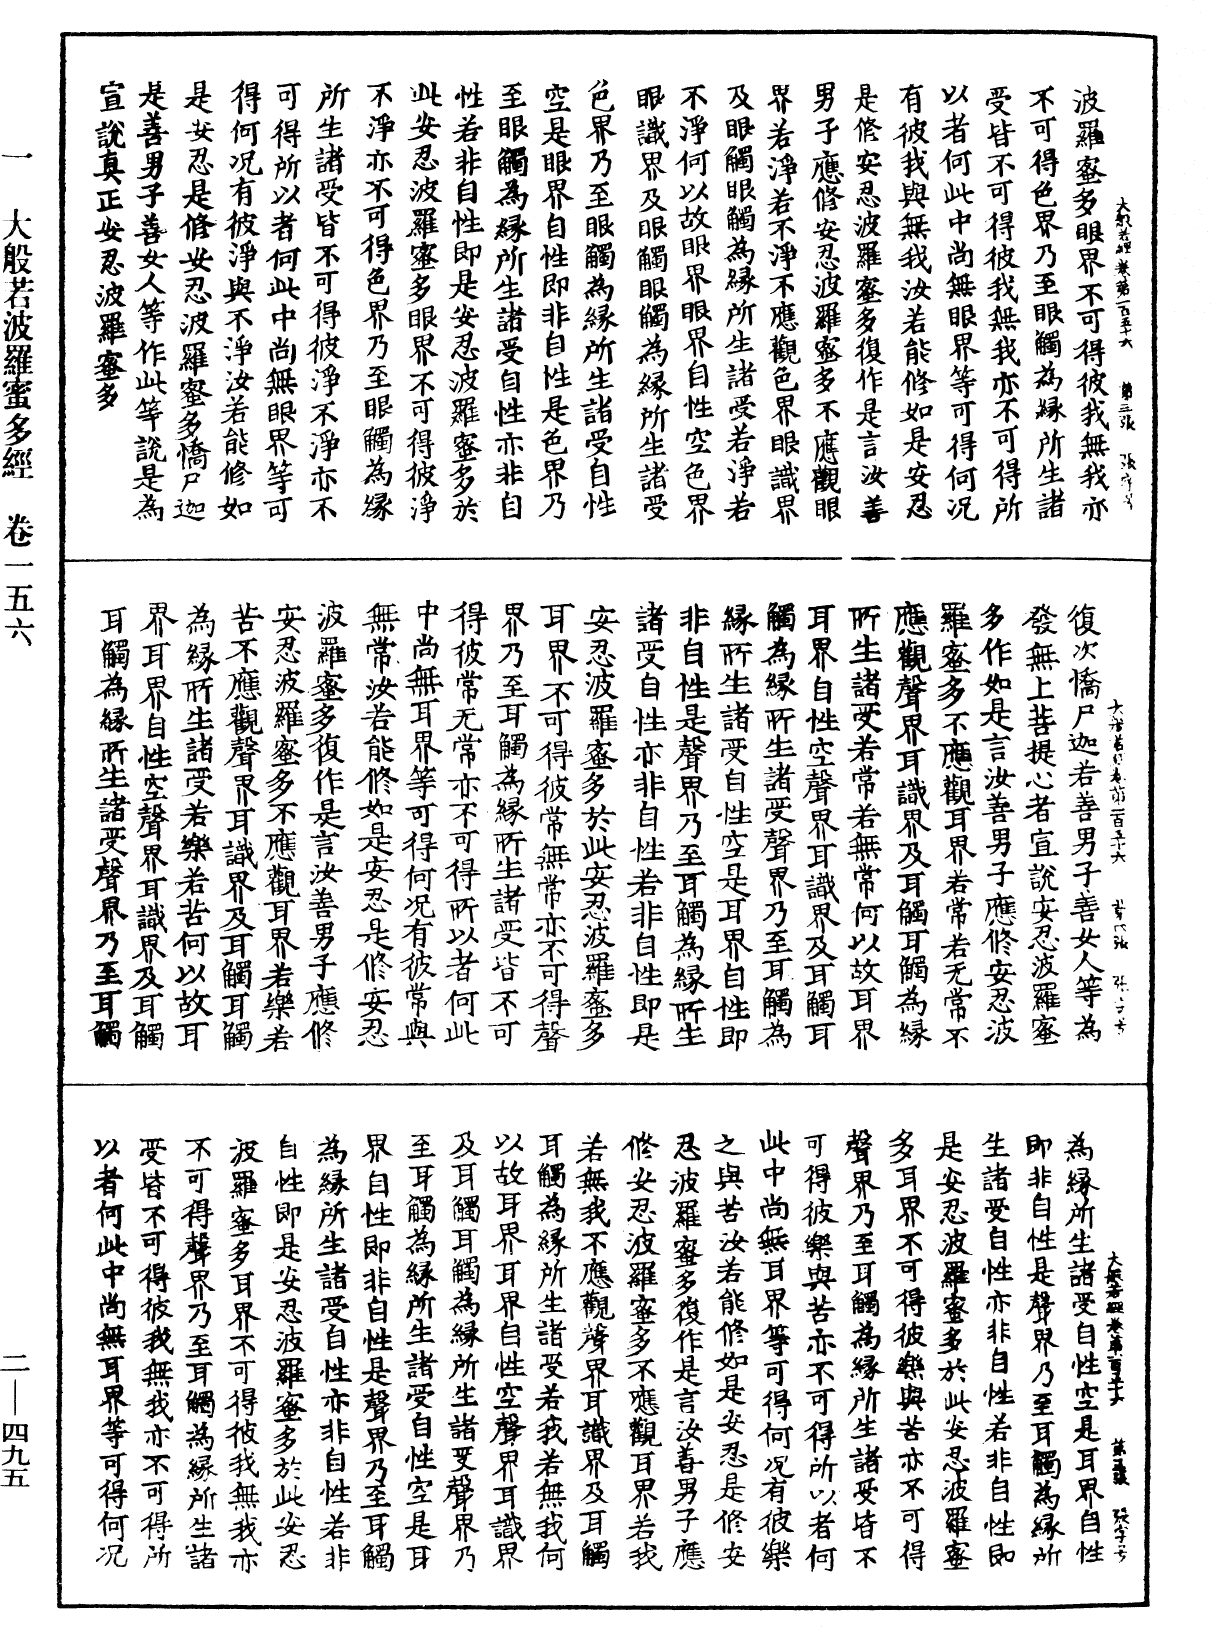 大般若經卷第一百五十六 第三張
波羅蜜多眼界不可得彼我無我亦
不可得色界乃至眼觸為緣所生諸
受皆不可得彼我無我亦不可得所
以者何此中尚無眼界等可得何況
有彼我與無我汝若能修如是安忍
是修安忍波羅蜜多復作是言汝善
男子應修安忍波羅蜜多不應觀眼
界若淨若不淨不應觀色界眼識界
及眼觸眼觸為緣所生諸受若淨若
不淨何以故眼界眼界自性空色界
眼識界及眼觸眼觸為緣所生諸受
色界乃至眼觸為緣所生諸受自性
空是眼界自性即非自性是色界乃
至眼觸為緣所生諸受自性亦非自
性若非自性即是安忍波羅蜜多於
此安忍波羅蜜多眼界不可得彼淨
不淨亦不可得色界乃至眼觸為緣
所生諸受皆不可得彼淨不淨亦不
可得所以者何此中尚無眼界等可
得何況有彼淨與不淨汝若能修如
是安忍是修安忍波羅蜜多憍尸迦
是善男子善女人等作此等說是為
宣說真正安忍波羅蜜多
復次憍尸迦若善男子善女人等為
發無上菩提心者宣說安忍波羅蜜
多作如是言汝善男子應修安忍波
羅蜜多不應觀耳界若常若无常不
應觀聲界耳識界及耳觸耳觸為緣
所生諸受若常若無常何以故耳界
耳界自性空聲界耳識界及耳觸耳
觸為緣所生諸受聲界乃至耳觸為
緣所生諸受自性空是耳界自性即
非自性是聲界乃至耳觸為緣所生
諸受自性亦非自性若非自性即是
安忍波羅蜜多於此安忍波羅蜜多
耳界不可得彼常無常亦不可得聲
界乃至耳觸為緣所生諸受皆不可
得彼常无常亦不可得所以者何此
中尚無耳界等可得何況有彼常與
無常汝若能修如是安忍是修安忍
波羅蜜多復作是言汝善男子應修
安忍波羅蜜多不應觀耳界若樂若
苦不應觀聲界耳識界及耳觸耳觸
為緣所生諸受若樂若苦何以故耳
界耳界自性空聲界耳識界及耳觸
耳觸為緣所生諸受聲界乃至耳觸
大般若經卷第一百五十六
為緣所生諸受自性空是耳界自性
即非自性是聲界乃至耳觸為緣所
生諸受自性亦非自性若非自性即
是安忍波羅蜜多於此安忍波羅蜜
多耳界不可得彼樂與苦亦不可得
聲界乃至耳觸為緣所生諸受皆不
可得彼樂與苦亦不可得所以者何
此中尚無耳界等可得何況有彼樂
之與苦汝若能修如是安忍是修安
忍波羅蜜多復作是言汝善男子應
修安忍波羅蜜多不應觀耳界若我
若無我不應觀聲界耳識界及耳觸
耳觸為緣所生諸受若我若無我何
以故耳界耳界自性空聲界耳識界
及耳觸耳觸為緣所生諸受聲界乃
至耳觸為緣所生諸受自性空是耳
界自性即非自性是聲界乃至耳觸
為緣所生諸受自性亦非自性若非
自性即是安忍波羅蜜多於此安忍
波羅蜜多耳界不可得彼我無我亦
不可得聲界乃至耳觸為緣所生諸
受皆不可得彼我無我亦不可得所
以者何此中尚無耳界等可得何況
一 大般若波羅蜜多經 卷一五六
二—四九五